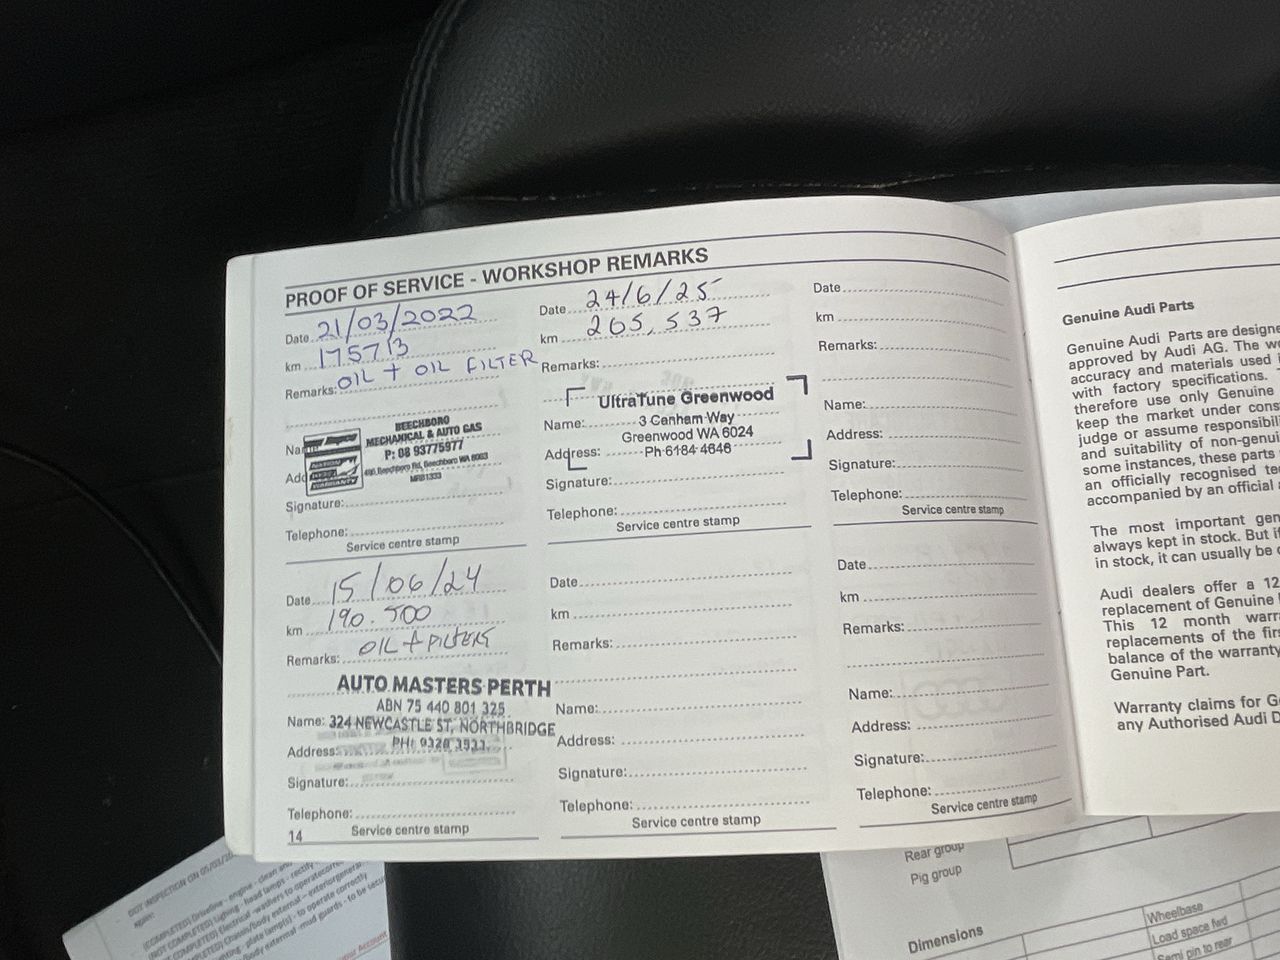 PROOF OF SERVICE - WORKSHOP REMARKS
Date 21/03/2022
km 175713
Remarks: OIL + OIL FILTER
BEECHBORO
MECHANICAL & AUTO GAS
P: 08 93775977
Beechboro Rd, Beechboro WA 6063
MRB1333
Signature:
Telephone:
Service centre stamp
Date 15/06/24
km 190.500
Remarks: OIL + FILTERS
AUTO MASTERS PERTH
ABN 75 440 801 325
Name: 324 NEWCASTLE ST, NORTHBRIDGE
Address: PH: 9328 3933
Signature:
Telephone:
Service centre stamp
14
Date 24/6/25
km 265,537
Remarks:
UltraTune Greenwood
Name: 3 Canham Way
Greenwood WA 6024
Address: Ph 6184 4646
Signature:
Telephone:
Service centre stamp
Date
km
Remarks:
Name:
Address:
Signature:
Telephone:
Service centre stamp
Date
km
Remarks:
Name:
Address:
Signature:
Telephone:
Service centre stamp
Date
km
Remarks:
Name:
Address:
Signature:
Telephone:
Service centre stamp
Genuine Audi Parts
Genuine Audi Parts are designe
approved by Audi AG. The
accuracy and materials used
with factory specifications.
therefore use only Genuine
keep the market under
judge or assume
and suitability of
some instances, these parts
an officially recognised
accompanied by an official
The most important
always kept in stock. But if
in stock, it can usually be
Audi dealers offer a 12
replacement of Genuine
This 12 month
replacements of the
balance of the warranty
Genuine Part.
Warranty claims for
any Authorised Audi
Rear group
Pig group
Dimensions
Wheelbase
Load space fwd
Semi pin to rear